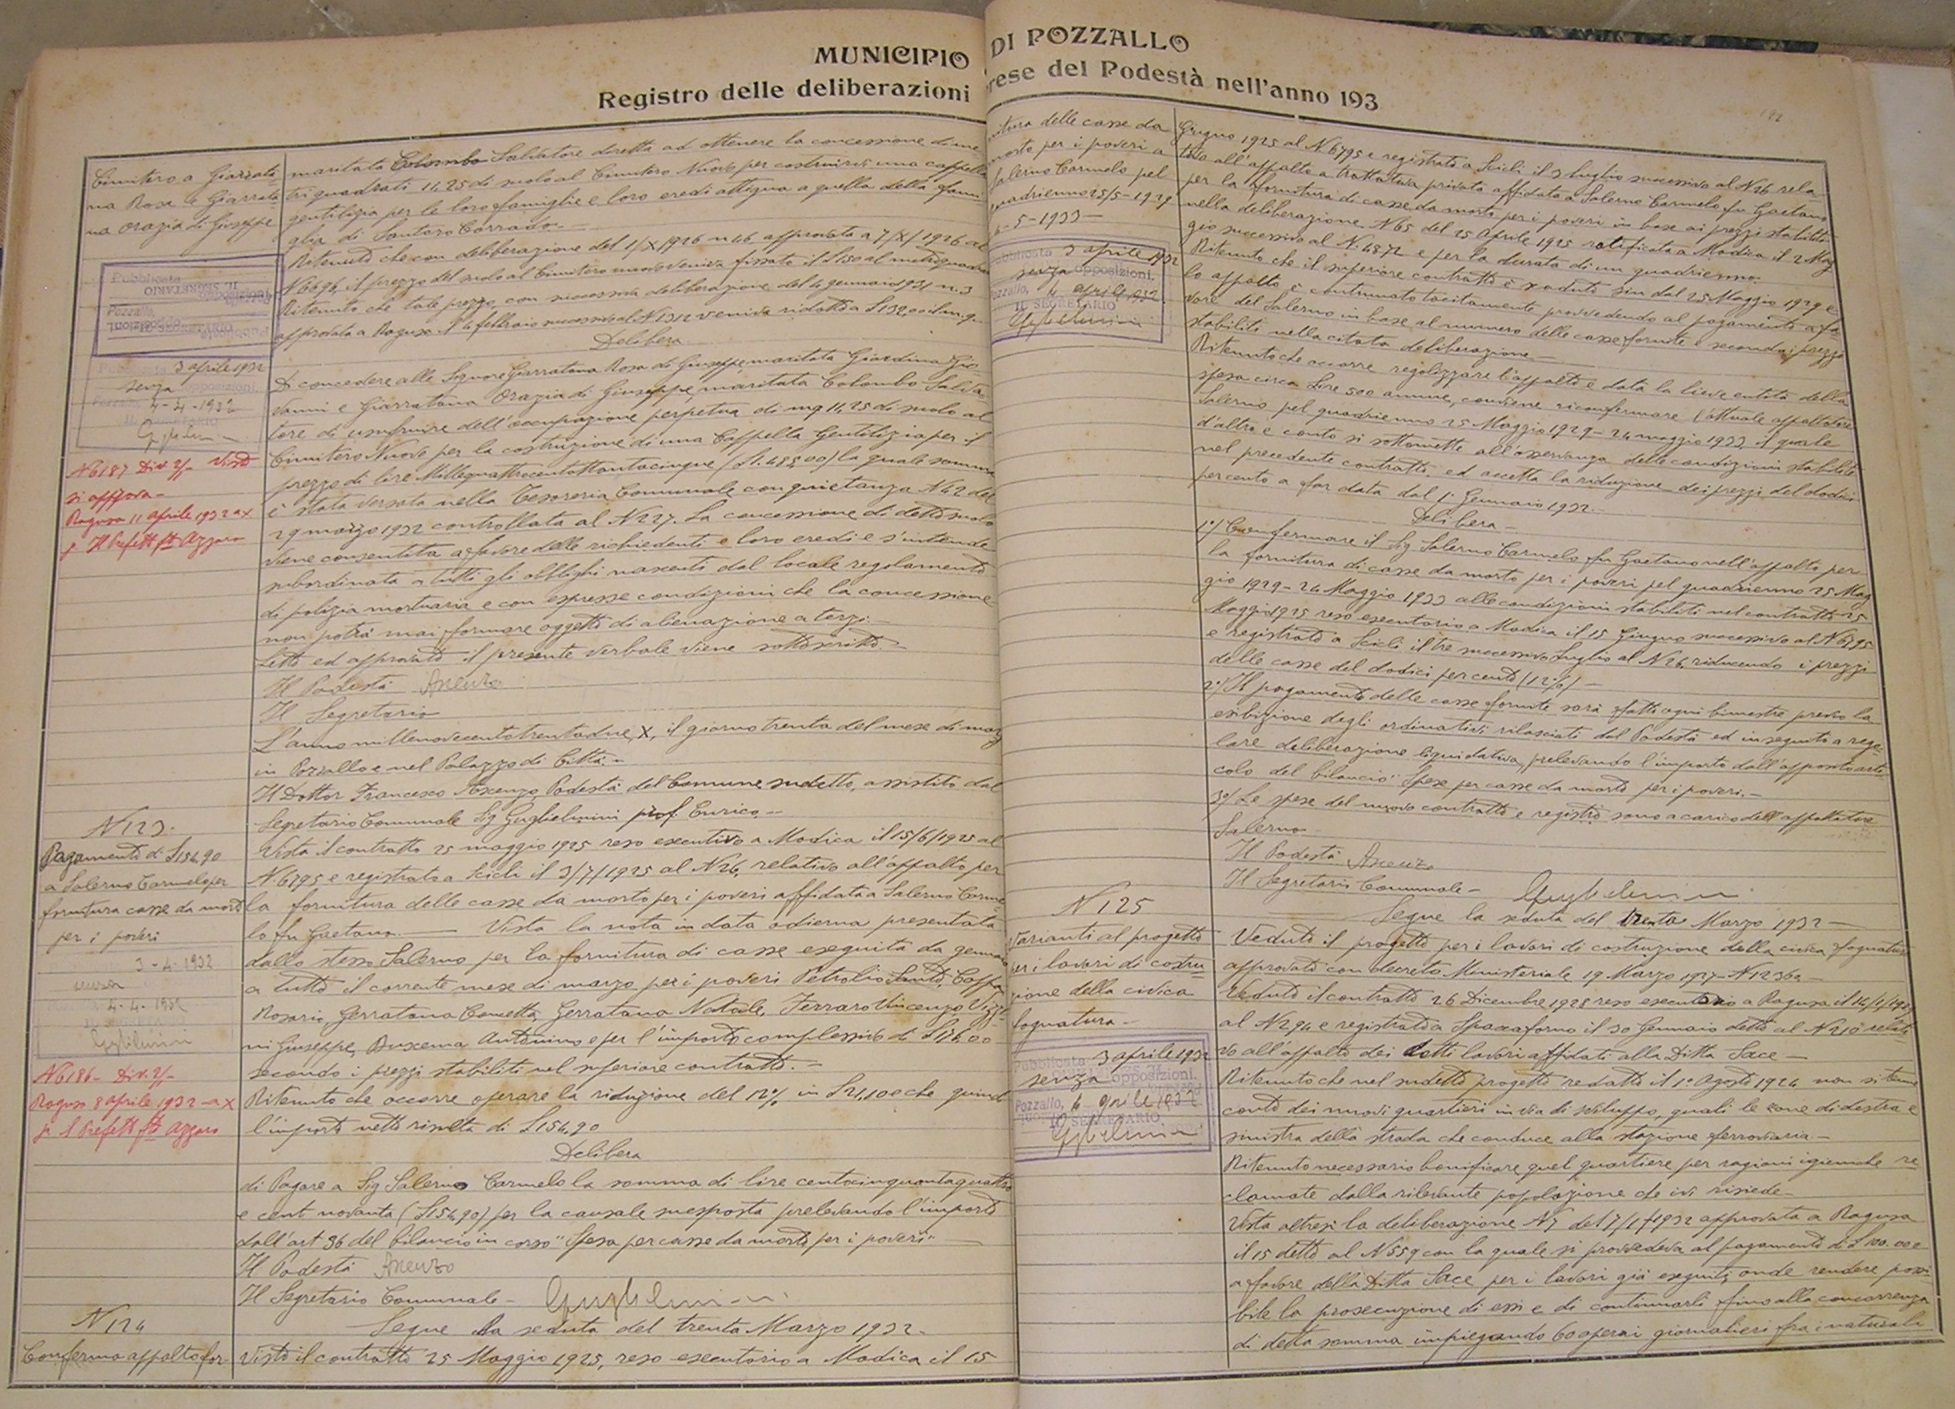 MUNICIPIO DI POZZALLO
Registro delle deliberazioni prese del Podestà nell'anno 193
Cimitero a Giarrata-
na Rosa e Giarrata
na Orazia di Giuseppe
Pubblicata
IL SEGRETARIO
Pozzallo,
Pubblicata 3 aprile 1932
senza opposizioni.
Pozzallo 4-4-1932
IL SEGRETARIO
Guglielmini
N 6187 Div. 2/- Visto
si approva -
Ragusa 11 aprile 1932 a X
p. Il Prefetto fto Azzaro
maritata Colombo Salvatore diretta ad ottenere la concessione di me
tri quadrati 11.25 di suolo al Cimitero Nuovo per costruirvi una cappella
gentilizia per le loro famiglie e loro eredi attigua a quella della fami
glia di Santoro Corrado.-
Ritenuto che con deliberazione del 1/X/1926 n 46 approvata a 7/X/1926 al
il prezzo del suolo al Cimitero nuovo veniva fissato il £ 150 al metro quadrato
Ritenuto che tale prezzo, con successiva deliberazione del 4 gennaio 1931 n. 3
approvata a Ragusa il 4 febbraio successivo al N 1312 veniva ridotto a £ 132.00 il m.q.
Delibera
Di concedere alle Signore Giarratana Rosa di Giuseppe maritata Giardina Gio
vanni e Giarratana Orazia di Giuseppe, maritata Colombo Salva
tore di usufruire dell'occupazione perpetua di mq 11,25 di suolo al
Cimitero Nuovo per la costruzione di una Cappella Gentilizia per il
prezzo di lire Millequattrocentottantacinque (£ 1.485,00) la quale somma
è stata versata nella Tesoreria Comunale con quietanza N 42 del
29 marzo 1932 controllata al N 227. La concessione di detto suolo
viene consentita a favore delle richiedenti e loro eredi e s'intende
subordinata a tutti gli obblighi nascenti dal locale regolamento
di polizia mortuaria e con espresse condizioni che la concessione
non potrà mai formare oggetto di alienazione a terzi.
Letto ed approvato il presente verbale viene sottoscritto.-
Il Podestà Ascenzo
Il Segretario
L'anno millenovecentotrentadue, X, il giorno trenta del mese di marzo
in Pozzallo e nel Palazzo di Città.-
Il Dottor Francesco Ascenzo Podestà del Comune sudetto, assistito dal
Segretario Comunale Sig Guglielmini prof. Enrico.-
N 123.
Pagamento di £ 154.90
a Salerno Carmelo per
fornitura casse da morto
per i poveri
3-4-1932
senza
4-4-1932
Guglielmini
N 6186- Div. 2/-
Ragusa 8 aprile 1932 - a X
p. Il Prefetto fto Azzaro
Visto il contratto 25 maggio 1925 reso esecutivo a Modica il 15/6/1925 al
N. 6795 e registrato a Scicli il 3/7/1925 al N 26, relativo all'appalto per
la fornitura delle casse da morto per i poveri affidata a Salerno Carme
lo fu Gaetano.- Vista la nota in data odierna presentata
dallo stesso Salerno per la fornitura di casse eseguita da gennaio
a tutto il corrente mese di marzo per i poveri Petrolio Santi, Coppa
Rosario, Gerratana Concetta, Gerratana Natale, Ferraro Vincenzo, Vizzi
ni Giuseppe, Buscema Antonino e per l'importo complessivo di £ 176.00
secondo i prezzi stabiliti nel superiore contratto.-
Ritenuto che occorre operare la riduzione del 12% in £ 21,10 e che quindi
l'importo netto risulta di £ 154.90
Delibera
di Pagare a Sig Salerno Carmelo la somma di lire centocinquantaquattro
e cent novanta (£ 154,90) per la causale suesposta prelevando l'importo
dall'art 36 del bilancio in corso "Spesa per casse da morto per i poveri"
Il Podestà Ascenzo
Il Segretario Comunale - Guglielmini
N 124
Conferma appalto for-
Segue la seduta del trenta Marzo 1932-
Visto il contratto 25 Maggio 1925, reso esecutorio a Modica il 15
nitura delle casse da
morto per i poveri a
Salerno Carmelo pel
quadriennio 25/5-1929
-5-1933-
Pubblicata 3 aprile 1932
senza opposizioni.
Pozzallo, 4 aprile 1932
IL SEGRETARIO
Guglielmini
Giugno 1925 al N 6795 e registrato a Scicli il 3 luglio successivo al N 26 rela
tivo all'appalto a trattativa privata affidata a Salerno Carmelo fu Gaetano
per la fornitura di casse da morto per i poveri in base ai prezzi stabiliti
nella deliberazione N 65 del 25 Aprile 1925 ratificata a Modica il 2 Mag
gio successivo al N. 4572 e per la durata di un quadriennio.
Ritenuto che il superiore contratto è scaduto sin dal 25 Maggio 1929 e
lo appalto è continuato tacitamente provvedendo al pagamento a fa
vore del Salerno in base al numero delle casse fornite e secondo i prezzi
stabiliti nella citata deliberazione.-
Ritenuto che occorre regolizzare l'appalto e data la lieve entità della
spesa circa Lire 500 annue, conviene riconfermare l'attuale appaltatore
Salerno pel quadriennio 25 Maggio 1929 - 24 maggio 1933 il quale
d'altro e canto si sottomette all'osservanza delle condizioni stabilite
nel precedente contratto ed accetta la riduzione dei prezzi del dodici
percento a far data dal 1° Gennaio 1932.
Delibera-
1°/ Confermare il Sig Salerno Carmelo fu Gaetano nell'appalto per
la fornitura di casse da morto per i poveri pel quadriennio 25 Mag
gio 1929 - 24 Maggio 1933 alle condizioni stabiliti nel contratto 25
Maggio 1925 reso esecutorio a Modica il 15 Giugno successivo al N 6795
e registrato a Scicli il tre successivo Luglio al N 26 riducendo i prezzi
delle casse del dodici per cento (12%)-
2°/ Il pagamento delle casse fornite sarà fatto ogni bimestre presso la
esibizione degli ordinativi rilasciati dal Podestà ed in seguito a rego-
lare deliberazione liquidativa, prelevando l'importo dall'apposito arti
colo del bilancio "Spese per casse da morto per i poveri.-
3°/ Le spese del nuovo contratto e registro sono a carico dell'appaltatore
Salerno-
Il Podestà Ascenzo
Il Segretario Comunale- Guglielmini
N 125
Varianti al progetto
per i lavori di costru
zione della civica
fognatura-
Pubblicata 3 aprile 1932
senza opposizioni.
Pozzallo, 4 aprile 1932
IL SEGRETARIO
Guglielmini
Segue la seduta del trenta Marzo 1932-
Veduto il progetto per i lavori di costruzione della civica fognatura
approvato con decreto Ministeriale 19 Marzo 1927
Veduto il contratto 26 Dicembre 1928 reso esecutorio a Ragusa il
al N 294 e registrato a Spaccaforno il 30 Gennaio detto al N 210 relati
vo all'appalto dei detti lavori affidati alla Ditta Sace-
Ritenuto che nel sudetto progetto redatto il 1° Agosto 1924 non si tenne
conto dei nuovi quartieri in via di sviluppo, quali le zone di destra e
sinistra della strada che conduce alla stazione ferroviaria-
Ritenuto necessario bonificare quel quartiere per ragioni igieniche re
clamate dalla rilevante popolazione che ivi risiede-
Vista altresì la deliberazione N 7 del 7/1/1932 approvata a Ragusa
il 15 detto al N 559 con la quale si provvedeva al pagamento di £ 100.000
a favore della Ditta Sace per i lavori già eseguiti onde rendere possi
bile la prosecuzione di essi e di continuarli fino alla concorrenza
di detta somma impiegando 60 operai giornalieri fra i naturali